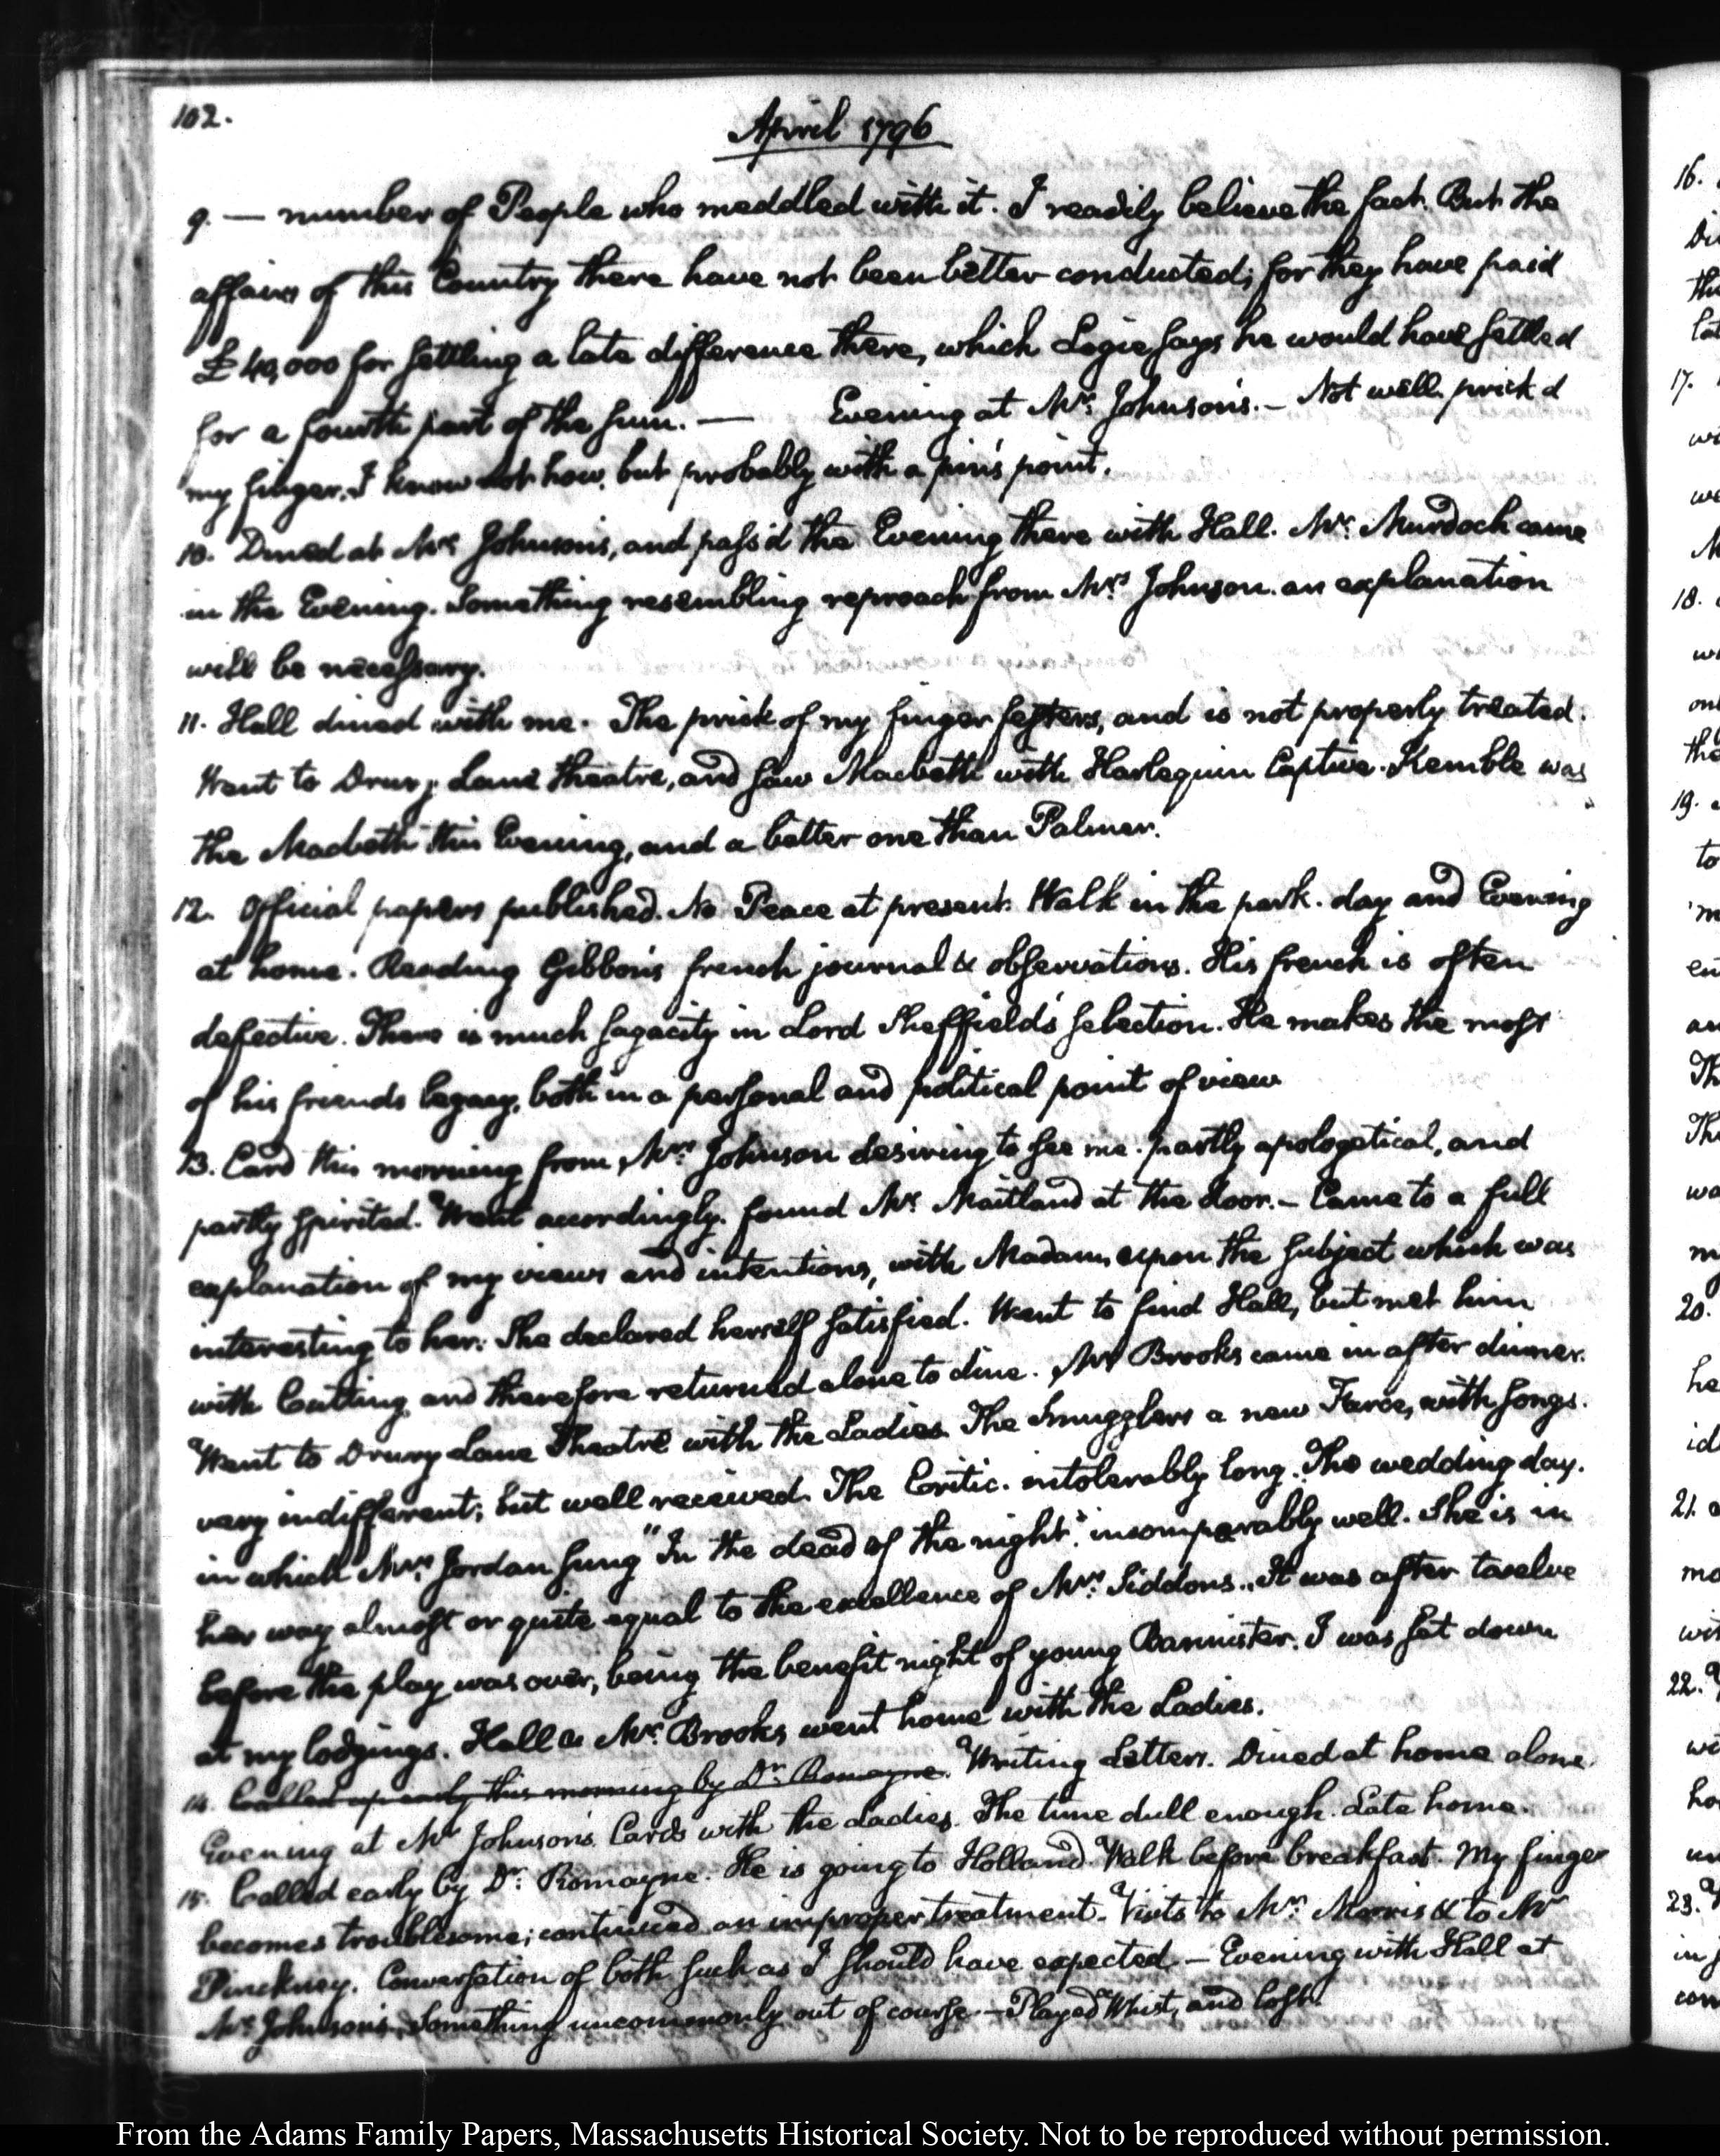 102.
April 1796
9. — number of People who meddled with it. I readily believe the fact. But the
affairs of this Country there have not been better conducted; for they have paid
£40,000 for settling a late difference there, which Logie says he would have settled
for a fourth part of the sum. — Evening at Mr: Johnson's. — Not well. prick'd
my finger, I know not how, but probably with a pin's point.
10. Dined at Mr: Johnson's, and pass'd the Evening there with Hall. Mr: Murdoch came
in the Evening. Something resembling reproach from Mrs: Johnson. an explanation
will be necessary.
11. Hall dined with me. The prick of my finger festers, and is not properly treated.
Went to Drury Lane theatre, and saw Macbeth with Harlequin Captive. Kemble was
the Macbeth this Evening, and a better one than Palmer.
12. Official papers published. No Peace at present. Walk in the park. day and Evening
at home. Reading Gibbon's french journal & observations. His french is often
defective. There is much sagacity in Lord Sheffield's selection. He makes the most
of his friends legacy, both in a personal and political point of view
13. Card this morning from Mrs: Johnson desiring to see me. partly apologetical, and
partly spirited. Went accordingly. found Mr: Maitland at the door. — Came to a full
explanation of my views and intentions, with Madam, upon the subject which was
interesting to her. She declared herself satisfied. Went to find Hall, but met him
with Cutting, and therefore returned alone to dine. Mr Brooks came in after dinner.
Went to Drury Lane Theatre with the Ladies. The Smugglers a new Farce, with songs.
very indifferent; but well received. The Critic. intolerably long. The wedding day.
in which Mrs: Jordan sung "In the dead of the night." incomparably well. She is in
her way almost or quite equal to the excellence of Mrs: Siddons. It was after twelve
before the play was over, being the benefit night of young Bannister. I was set down
at my lodgings. Hall & Mr: Brooks went home with the Ladies.
14. Called up early this morning by Dr: Romayne. Writing Letters. Dined at home alone.
Evening at Mr Johnson's. Cards with the Ladies. The time dull enough. Late home.
15. Called early by Dr: Romayne. He is going to Holland. Walk before breakfast. My finger
becomes troublesome; continued an improper treatment. Visits to Mr: Morris & to Mr
Pinckney. Conversation of both such as I should have expected — Evening with Hall at
Mr: Johnson's. Something uncommonly out of course — Played Whist, and lost.
16.
17.
18.
19.
20.
21.
22.
23.
From the Adams Family Papers, Massachusetts Historical Society. Not to be reproduced without permission.